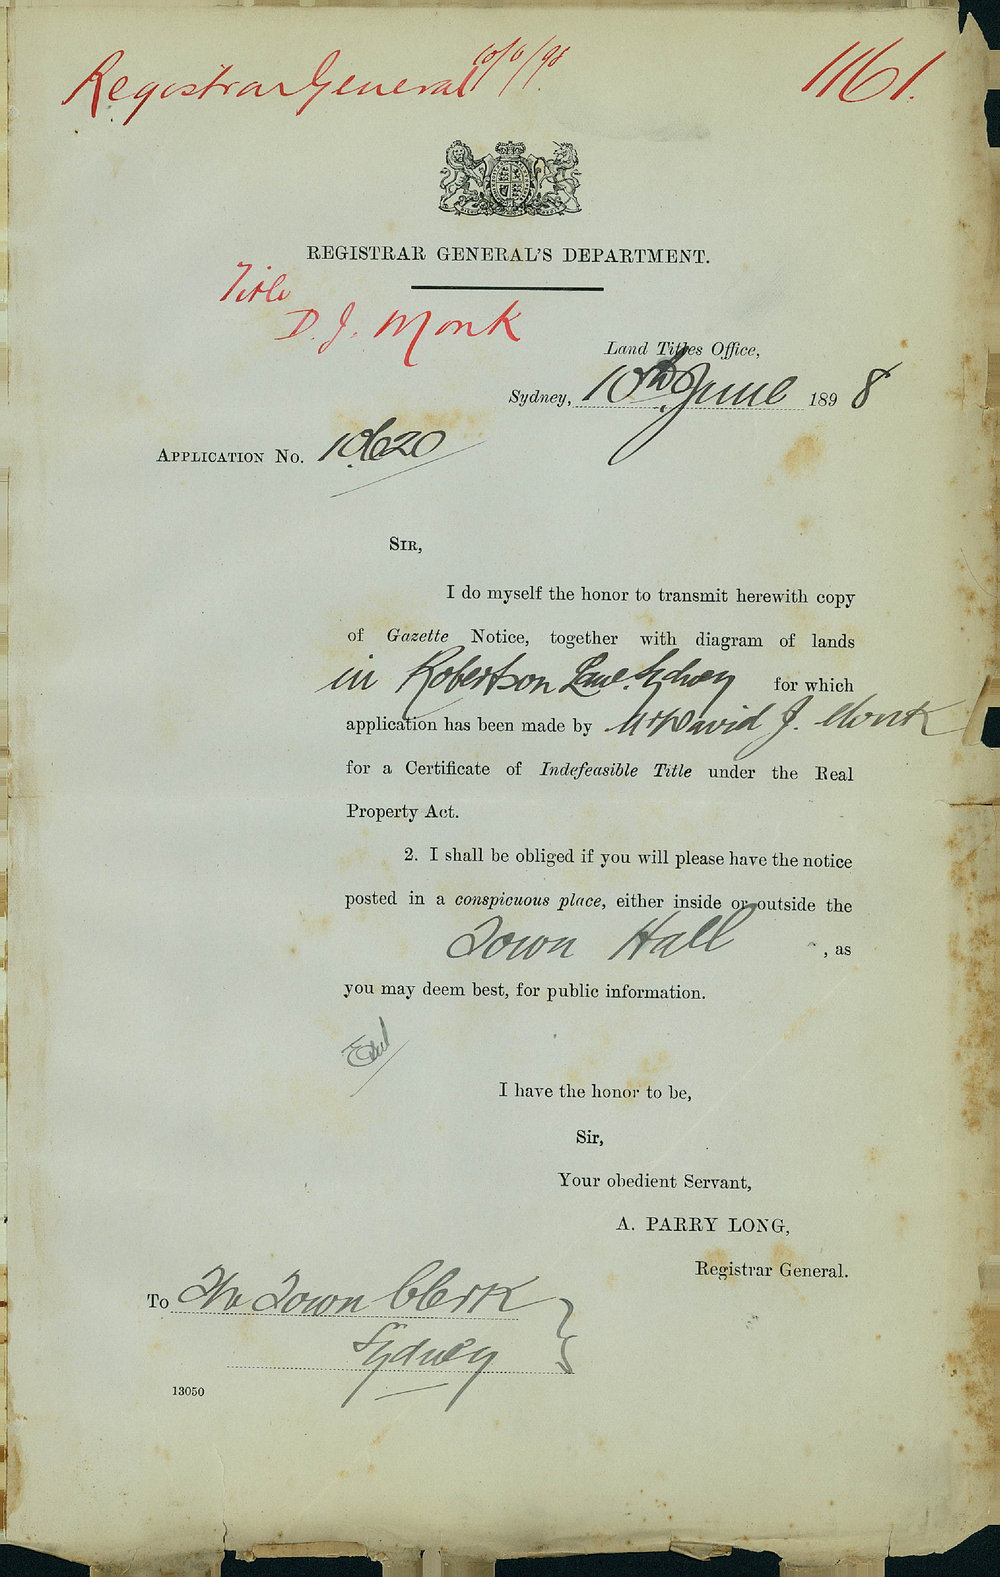 Registrar General 10/6/98
1161.
REGISTRAR GENERAL'S DEPARTMENT.
Title
D. J. Monk
Land Titles Office,
Sydney, 10th June 1898
APPLICATION No. 10620
SIR,
I do myself the honor to transmit herewith copy
of Gazette Notice, together with diagram of lands
in Robertson Lane. Sydney for which
application has been made by Mr David J. Monk
for a Certificate of Indefeasible Title under the Real
Property Act.
2. I shall be obliged if you will please have the notice
posted in a conspicuous place, either inside or outside the
Town Hall , as
you may deem best, for public information.
I have the honor to be,
Sir,
Your obedient Servant,
A. PARRY LONG,
Registrar General.
To The Town Clerk
Sydney
13050